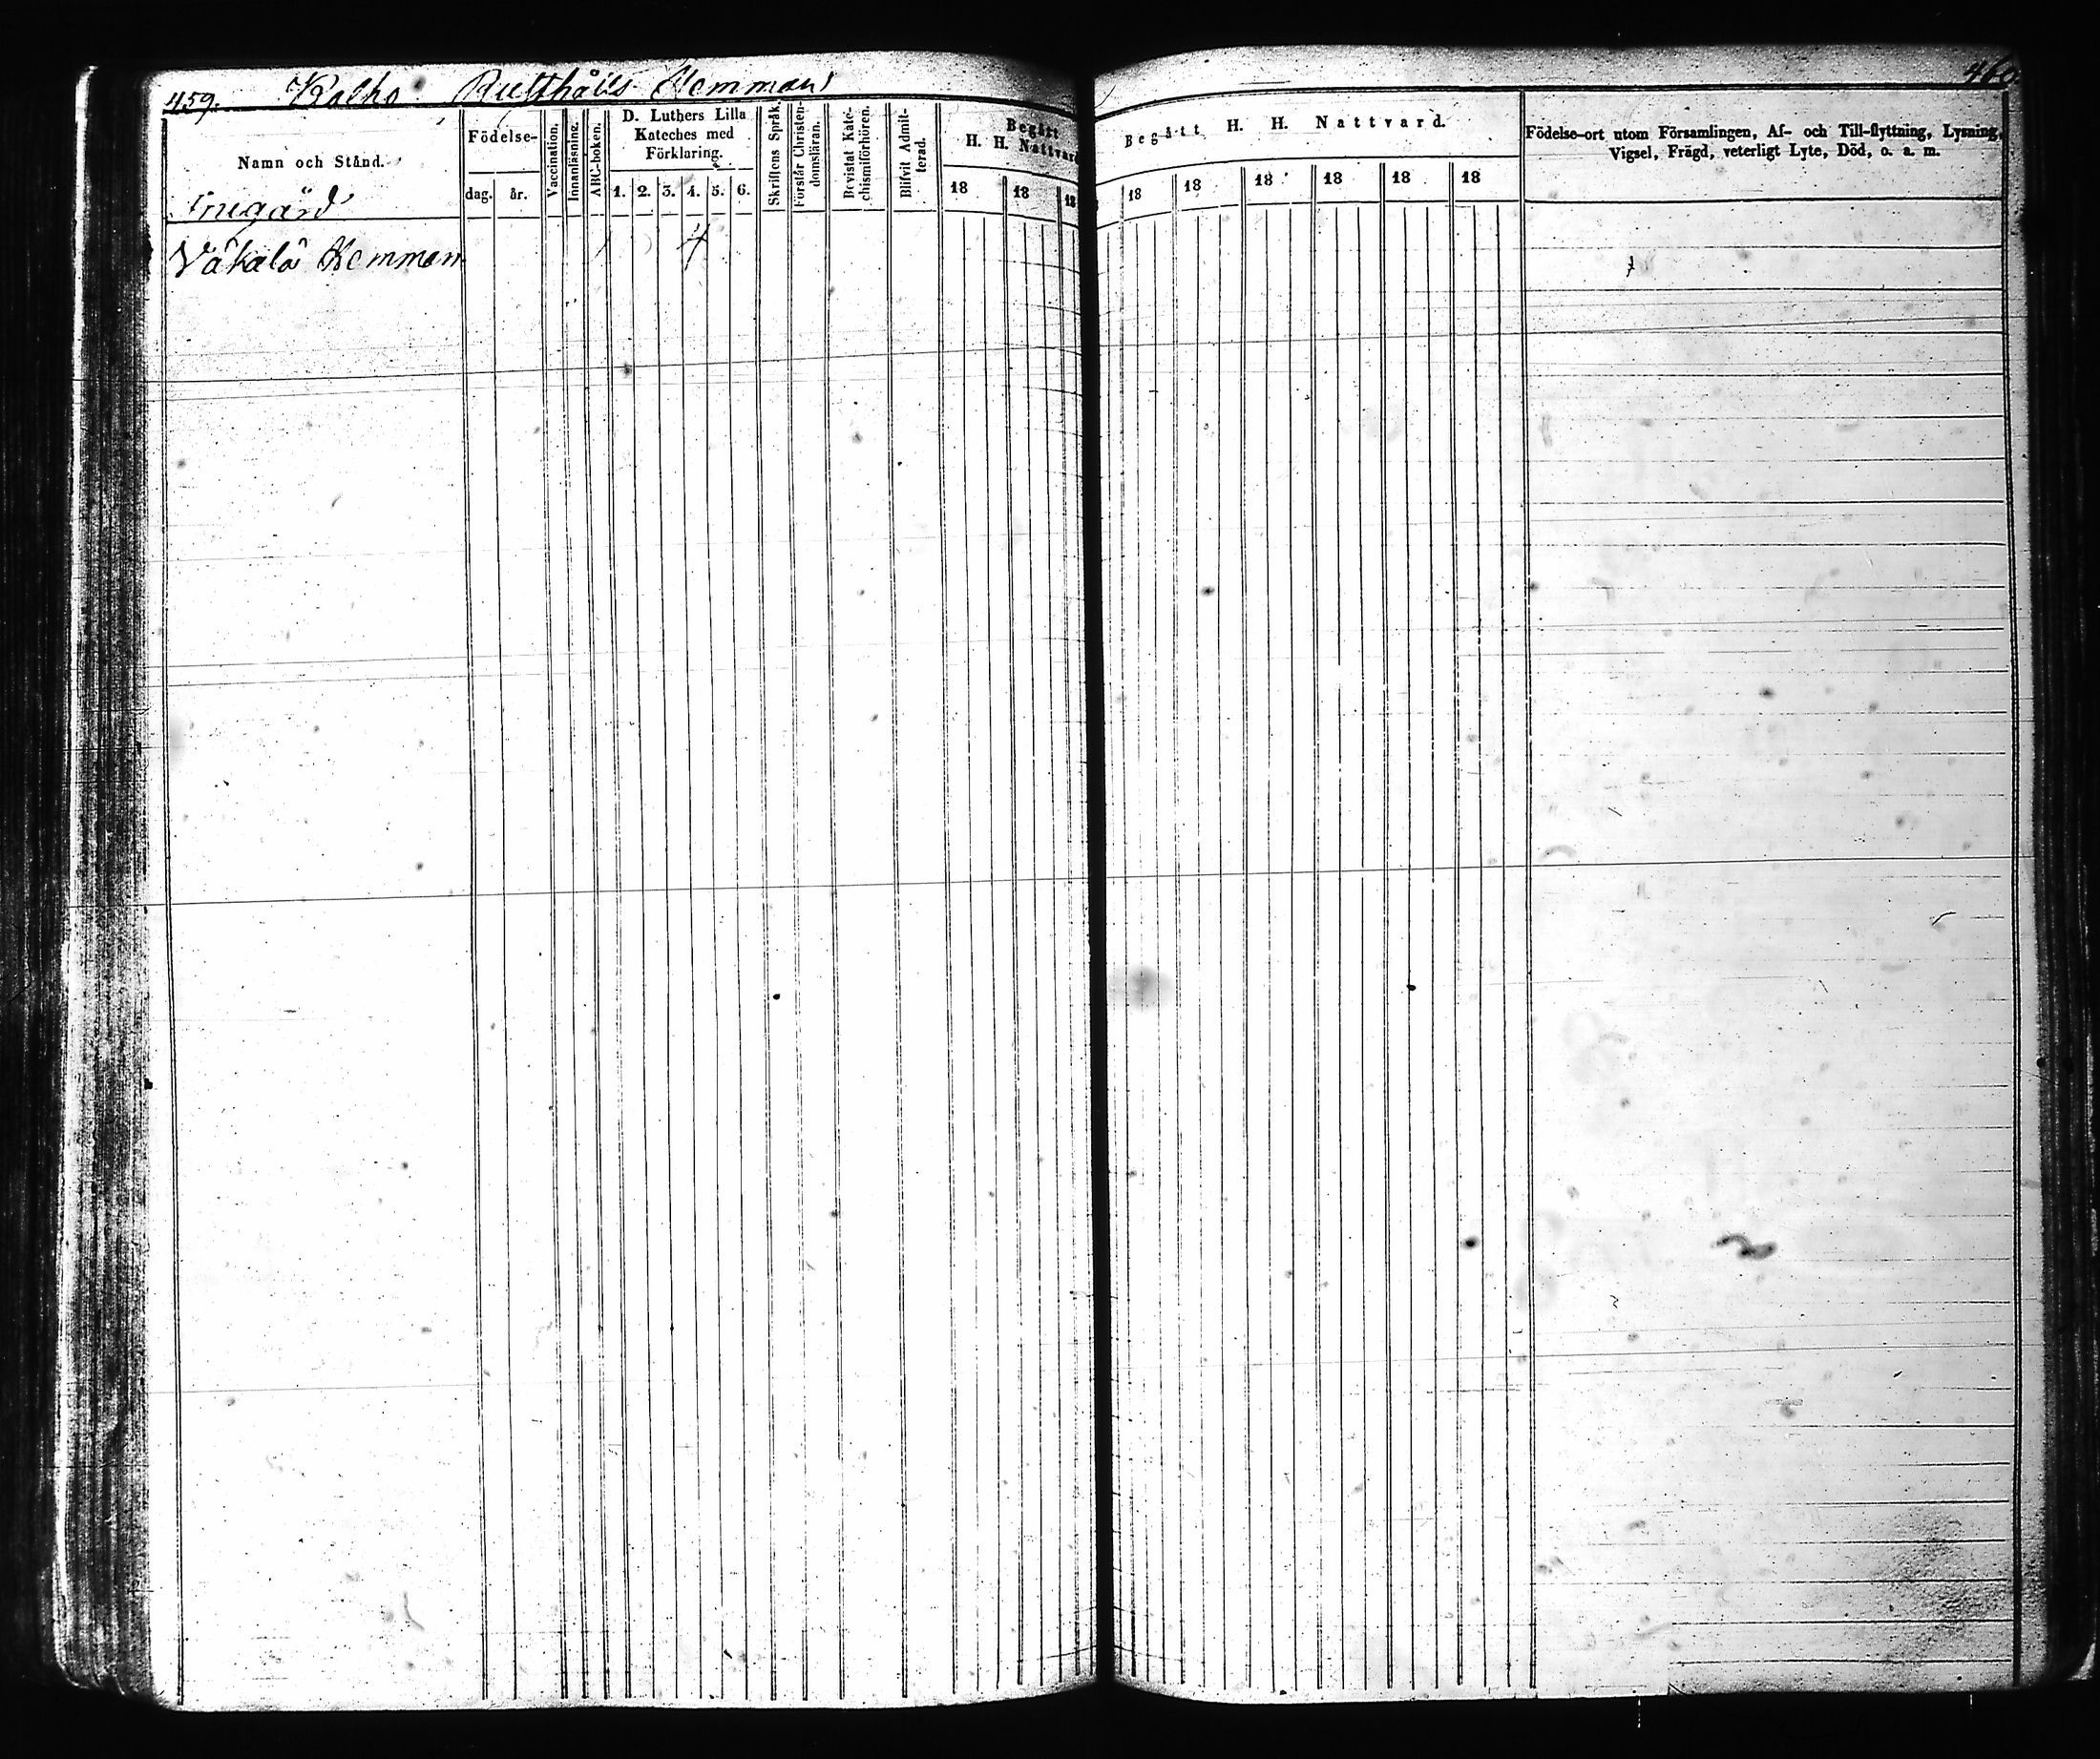 459. Kalho Rusthålls Hemman
460.
Namn och Stånd.
Födelse-
dag. år.
Vaccination.
Innanläsning.
ABC-boken.
D. Luthers Lilla
Kateches med
Förklaring.
1. 2. 3. 4. 5. 6.
Skriftens Språk.
Förstår Christen-
domsläran.
Bevistat Kate-
chismiförhören.
Blifvit Admit-
terad.
Begått
H. H. Nattvard
18 18 18
Begått H. H. Nattvard.
18 18 18 18 18 18
Födelse-ort utom Församlingen, Af- och Till-flyttning, Lysning,
Vigsel, Frägd, veterligt Lyte, Död, o. a. m.
Vâkalâ Hemman
4